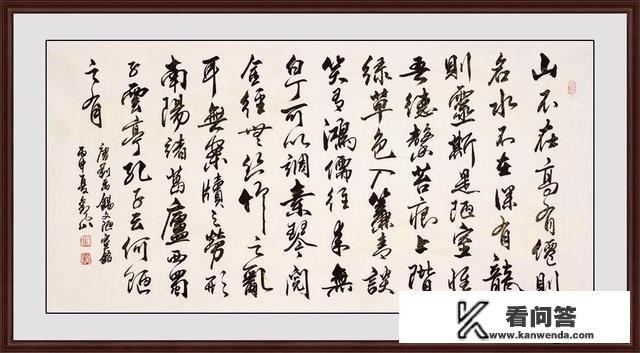 山不在高有僊則
名水不在深有龍
則靈斯是陋室惟
吾德馨苔痕上階
綠草色入簾青談
笑有鴻儒往来無
白丁可以調素琴閱
金經無絲竹之亂
耳無案牘之勞形
南陽諸葛廬西蜀
子雲亭孔子云何陋
之有
唐劉禹錫文陋室銘
丙申夏
K 看问答
www.kanwenda.com